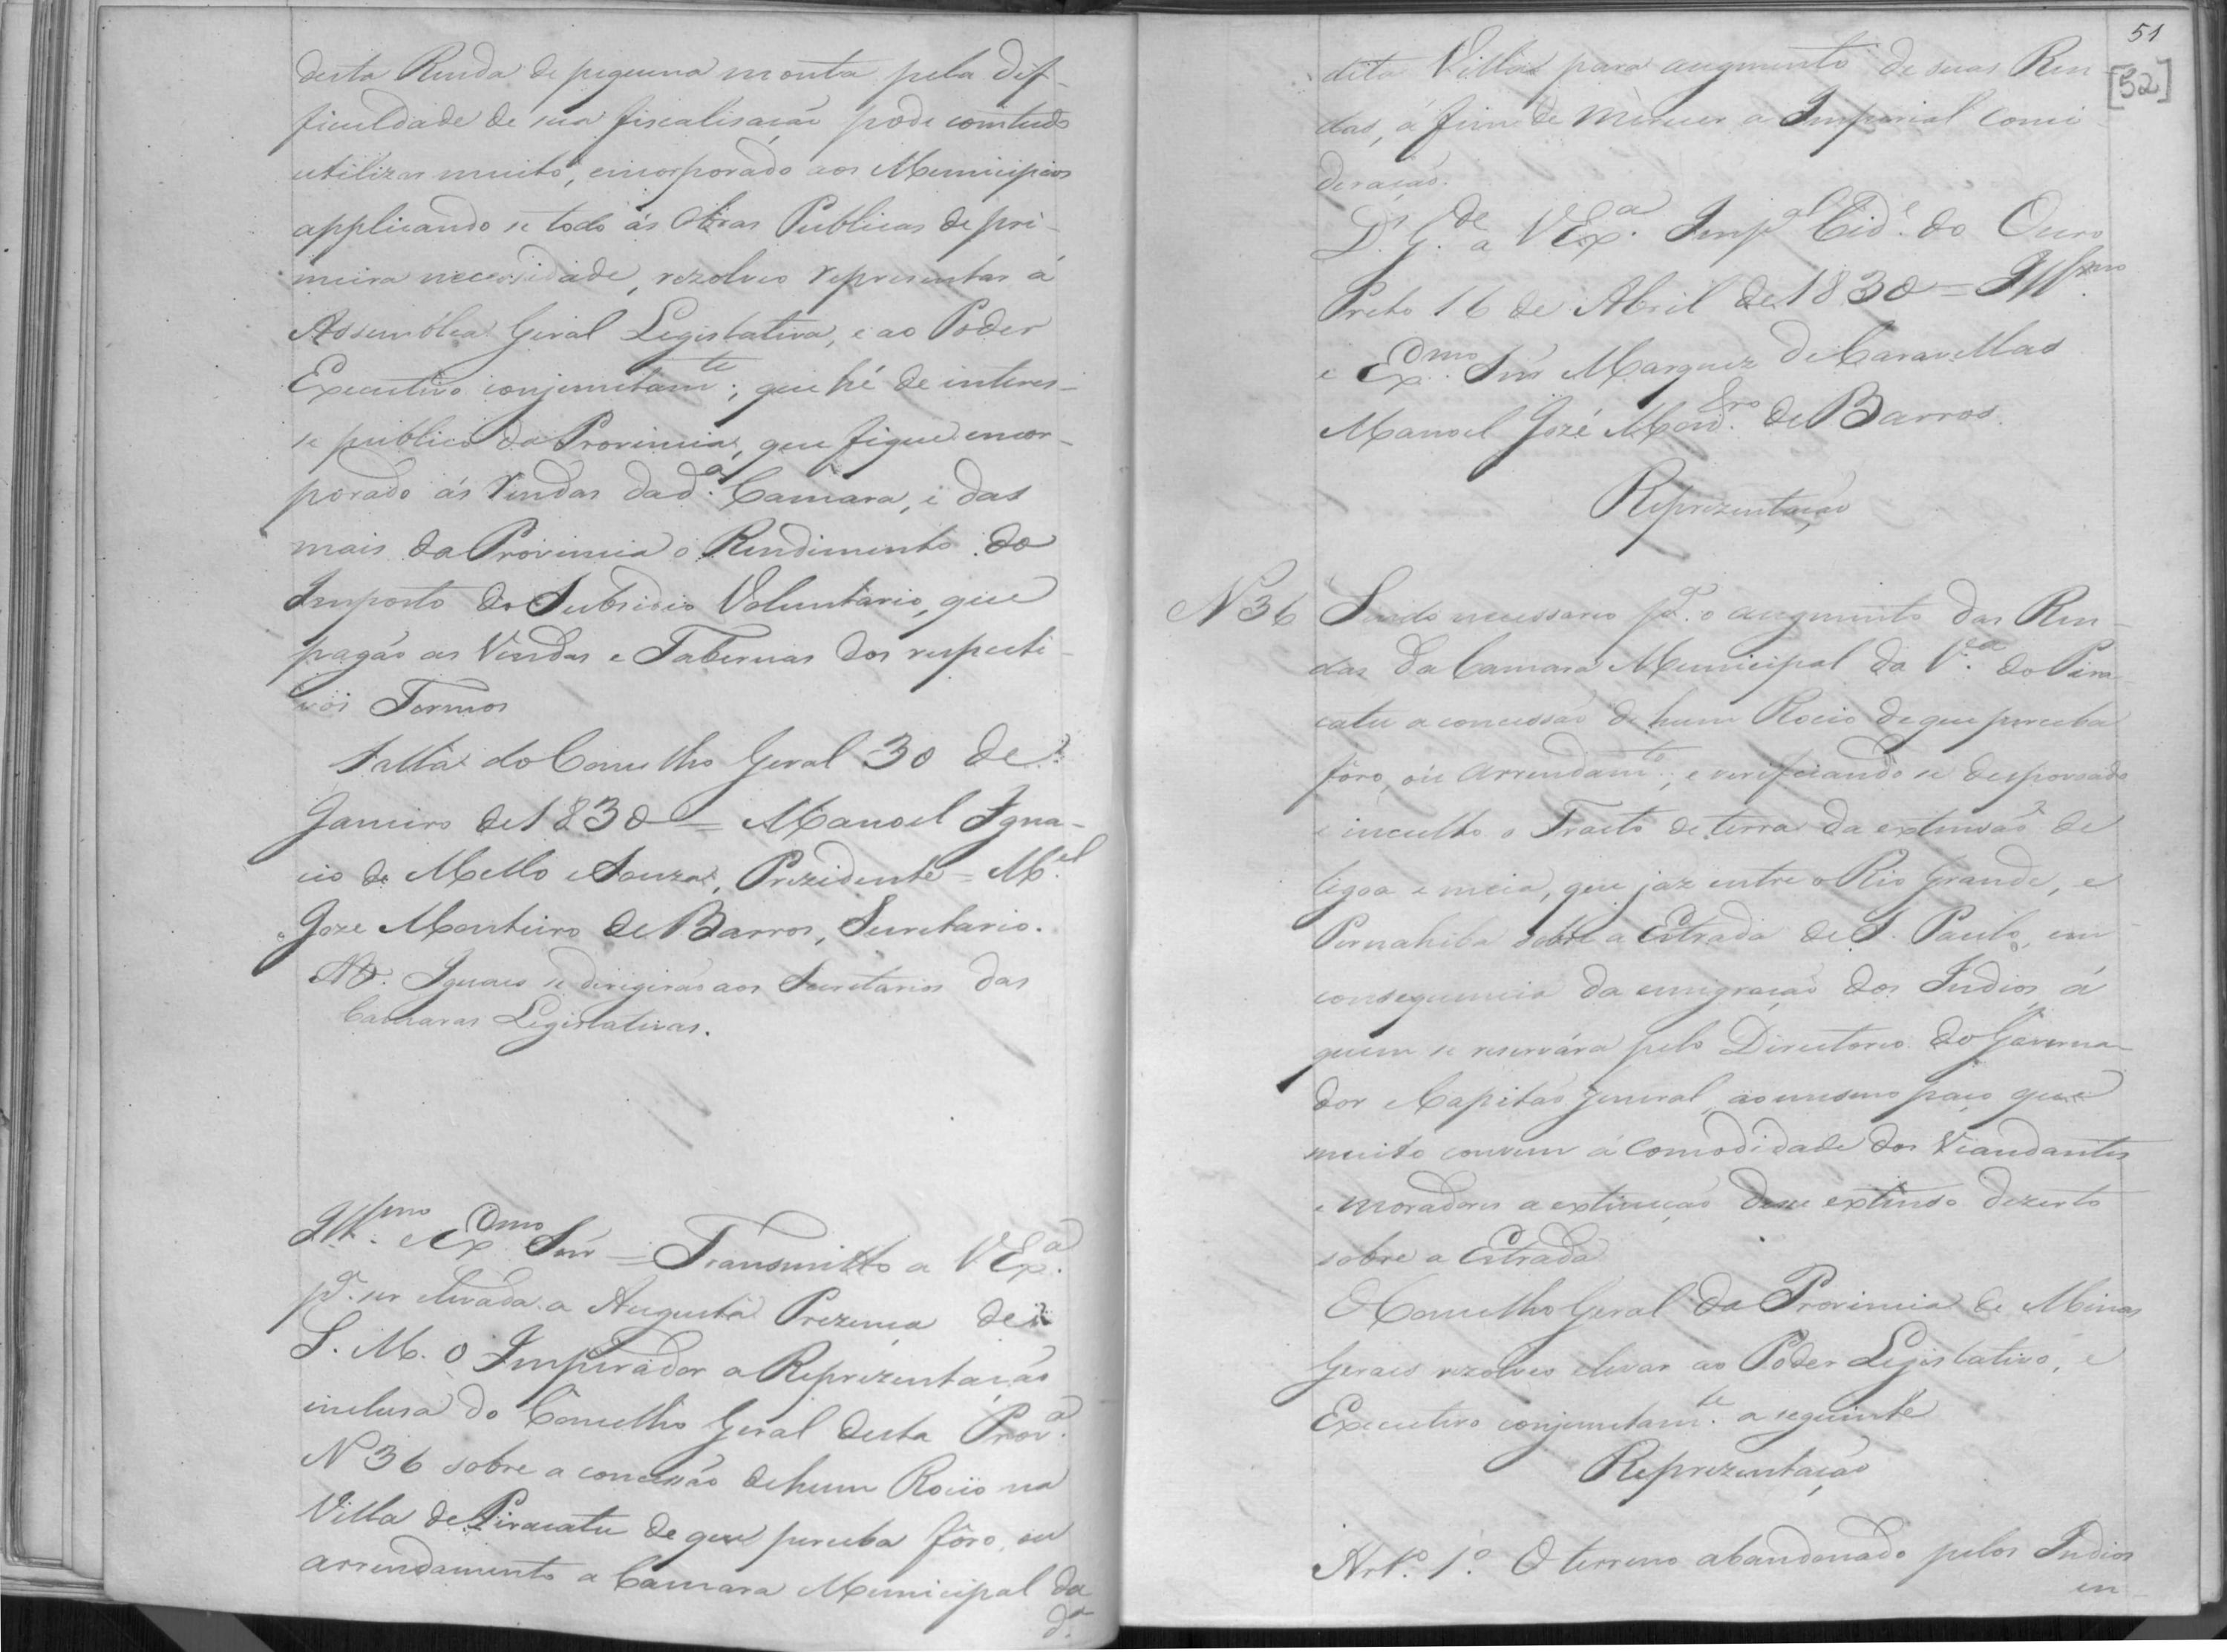 desta Renda de pequena monta pela dif-
ficuldade de sua fiscalisação pode comtudo
utilizar muito, encorporado aos Municipios
applicando se todo ás Obras Publicas de pri-
meira necessidade, rezolveo representar á
Assembléa Geral Legislativa, e ao Poder
Executivo conjunctam.te; que hé de interes-
se publico da Provincia, que fique encor-
porado ás rendas dad.a Camara, e das
mais da Provincia o Rendimento do
Imposto do Subsidio Voluntario, que
pagão as Vendas e Tabernas dos respecti-
vos Termos
Salla do Conselho Geral 30 de
Janeiro de 1830 = Manoel Igna-
cio de Mello e Souza, Prezidente = M.el
Joze Monteiro de Barros, Secretario.
NB. Iguaes se dirigirão aos Secretarios das
Camaras Legislativas.
Ill.mo e Ex.mo Snr = Transmitto a V Ex.a
p.a ser elevada a Augusta Prezença de
S. M. O Imperador a Reprezentação
inclusa do Conselho Geral desta Prov.a
N 36 sobre a concessão de hum Rocio na
Villa de Piracatu de que perceba fôro, ou
arrendamento a Camara Municipal da
d.a
51
[52]
dita Villa para augmento de suas Ren-
das, á fim de merecer a Imperial consi-
deração.
D.s G.de a V Ex.a Imp.al Cid.e do Ouro
Preto 16 de Abril de 1830 = Ill.mo
e Ex.mo Snr Marquez de Caravellas
Manoel José Mont.ro de Barros
Reprezentação
N 36 Sendo necessario p.a o augmento das Ren-
das da Camara Municipal da V.a do Pira-
catu a concessão de hum Rocio de que perceba
fôro, ou arrendam.to; e verificando se despovoado
e inculto o Tracto de terra da extensão de
legoa e meia, que jaz entre o Rio Grande, e
Pernahiba sobre a Estrada de S. Paulo, em
consequencia da emigração dos Indios á
quem se reservára pelo Directorio do Governa-
dor e Capitão General, ao mesmo paço que
muito convem á comodidade dos Viandantes
e moradores a extincção desse extenso dezerto
sobre a Estrada
O Conselho Geral da Provincia de Minas
Geraes rezolveo elevar ao Poder Legislativo, e
Executivo conjunctam.te a seguinte
Reprezentação
Art.o 1.o O terreno abandonado pelos Indios
en-